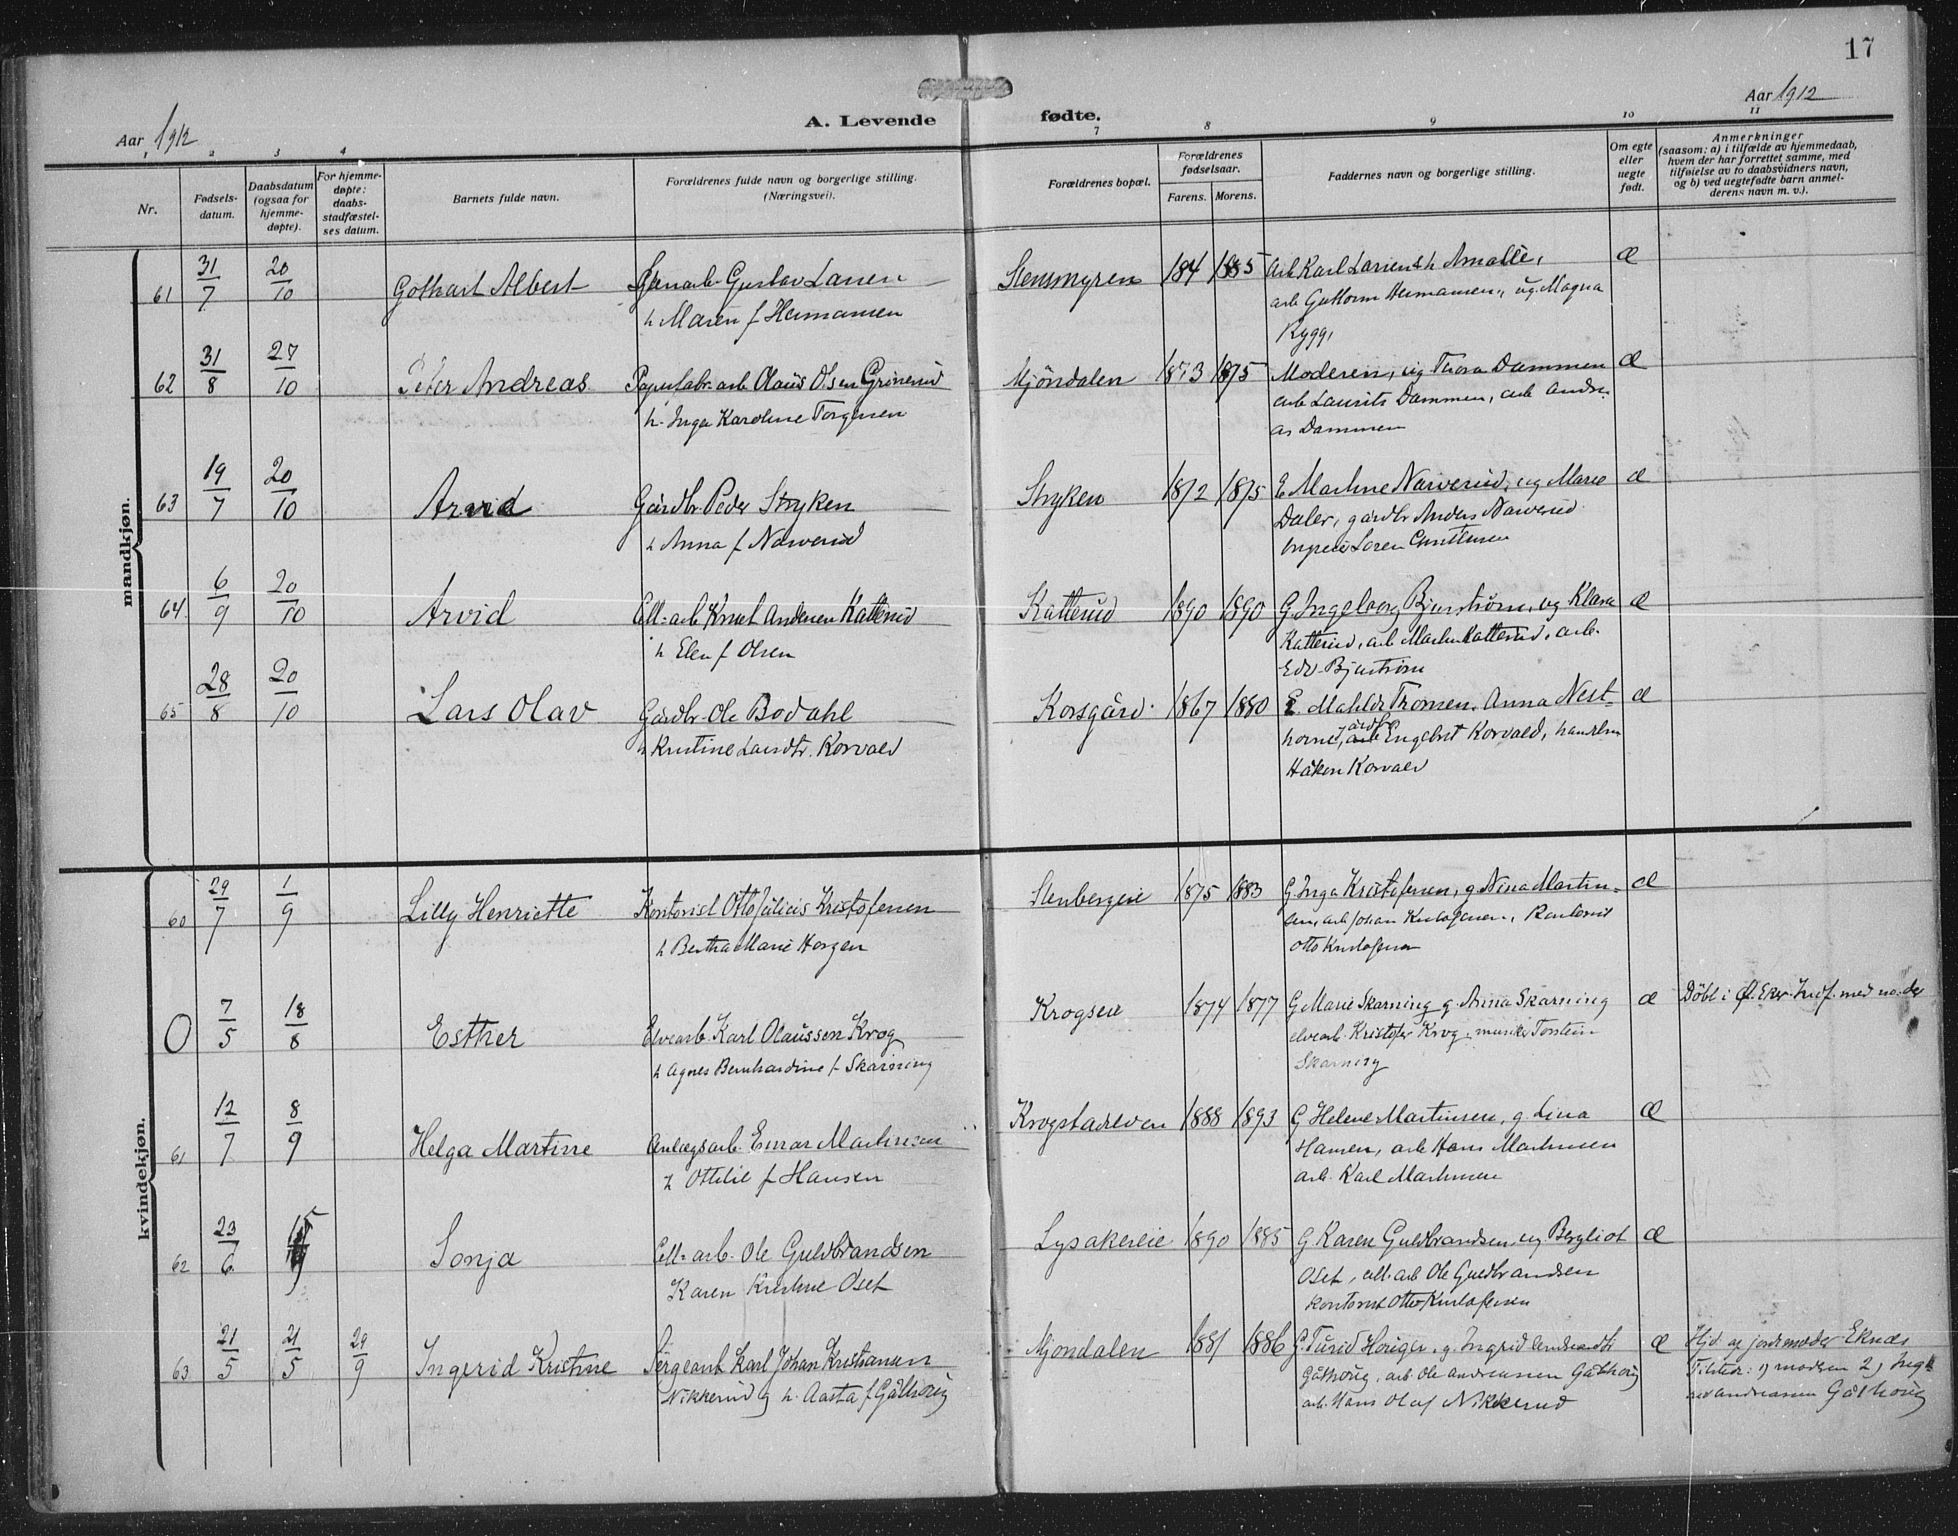 17
Aar 1912
Aar 1912
A. Levende fødte.
1 2 3 4 7 8 9 10 11
Nr.
Fødsels-
datum.
Daabsdatum
(ogsaa for
hjemme-
døpte).
For hjemme-
døpte:
daabs-
stadfæstel-
ses datum.
Barnets fulde navn.
Forældrenes fulde navn og borgerlige stilling.
(Næringsvei).
Forældrenes bopæl.
Forældrenes
fødselsaar.
Farens. Morens.
Faddernes navn og borgerlige stilling.
Om egte
eller
uegte
født.
Anmerkninger
(saasom: a) i tilfælde av hjemmedaab,
hvem der har forrettet samme, med
tilføielse av to daabsvidners navn,
og b) ved uegtefødte barn anmel-
derens navn m. v.).
mandkjøn.
61 31/7 20/10 Gothart Albert Gustav Larsen Stensmyren 1885 Arb Karl Larsen & h Amalie, æ
h Maren f Hermansen arb Guttorm Hermansen, ug. Magna
Rygg,
62 31/8 27/10 Peter Andreas Papirfabr. arb Olaus Olsen Grinerud Mjöndalen 1873 1875 Moderen, ug Thora Dammen æ
h. Inga Karoline Torgersen arb Laurits Dammen, arb Andre-
as Dammen
63 19/7 20/10 Arvid Gårdbr Peder Stryken Stryken 1872 1875 E Martine Narverud, ug Marie æ
h Anna f Narverud Daler, gårdbr Anders Narverud
Søren Christensen
64 6/9 20/10 Arvid Cell-arb Knut Andersen Katterud Katterud 1890 1890 G. Ingeborg Bjurstrøm, ug Klara æ
h Elen f Olsen Katterud, arb Martin Katterud, arb.
Edv. Bjurstrøm
65 28/8 20/10 Lars Olav Gårdbr. Ole Bodahl Korsgård 1867 1880 E. Mathilde Thomsen, Anna Nest- æ
h Kristine Lauritz Korvald horne, gårdbr Engebret Korvald, handelsm
Håken Korvald
kvindekjøn.
60 29/7 1/9 Lilly Henriette Kontorist Otto Julius Kristofersen Stenbergeie 1875 1883 G. Inga Kristofersen, g. Nina Martin- æ
h Bertha Marie Horgen sen, arb Johan Kristofersen, Kontorist
Otto Kristofersen
0 7/5 18/8 Esther Elvearb. Karl Olaussen Krog Krogseie 1874 1877 G Marie Skarning g. Anna Skarning æ Döbt i Ø. Eker. Indf. med no. der
h Agnes Bernhardine f Skarning elvearb. Kristofer Krog, musiker Torstein
Skarning
61 12/7 8/9 Helga Martine Anlægsarb. Einar Martinsen Krogstadelven 1888 1893 G Helene Martinsen, g. Lina æ
h Ottilie f Hansen Hansen, arb Hans Martinsen
arb. Karl Martinsen
62 23/6 15/9 Sonja Cell-arb. Ole Guldbrandsen Lysakereie 1890 1885 G Karen Guldbrandsen, ug Bergliot æ
Karen Kristine Oset Oset, cell. arb Ole Guldbrandsen
Kontorist Otto Kristofersen
63 21/5 21/5 29/9 Ingerid Kristine Sergeant Karl Johan Kristiansen Mjöndalen 1881 1886 G. Turid Horiger, g. Ingrid Andreasdtr æ Hjd. av jordmoder Eknæs
Nikkerud og h. Aasta f Gåthaug Gåthaug, arb Ole Andreassen Gåthaug Tilsted. 1) modren 2) Ing-
arb. Hans Olaf Nikkerud rid Andreassen Gåthaug